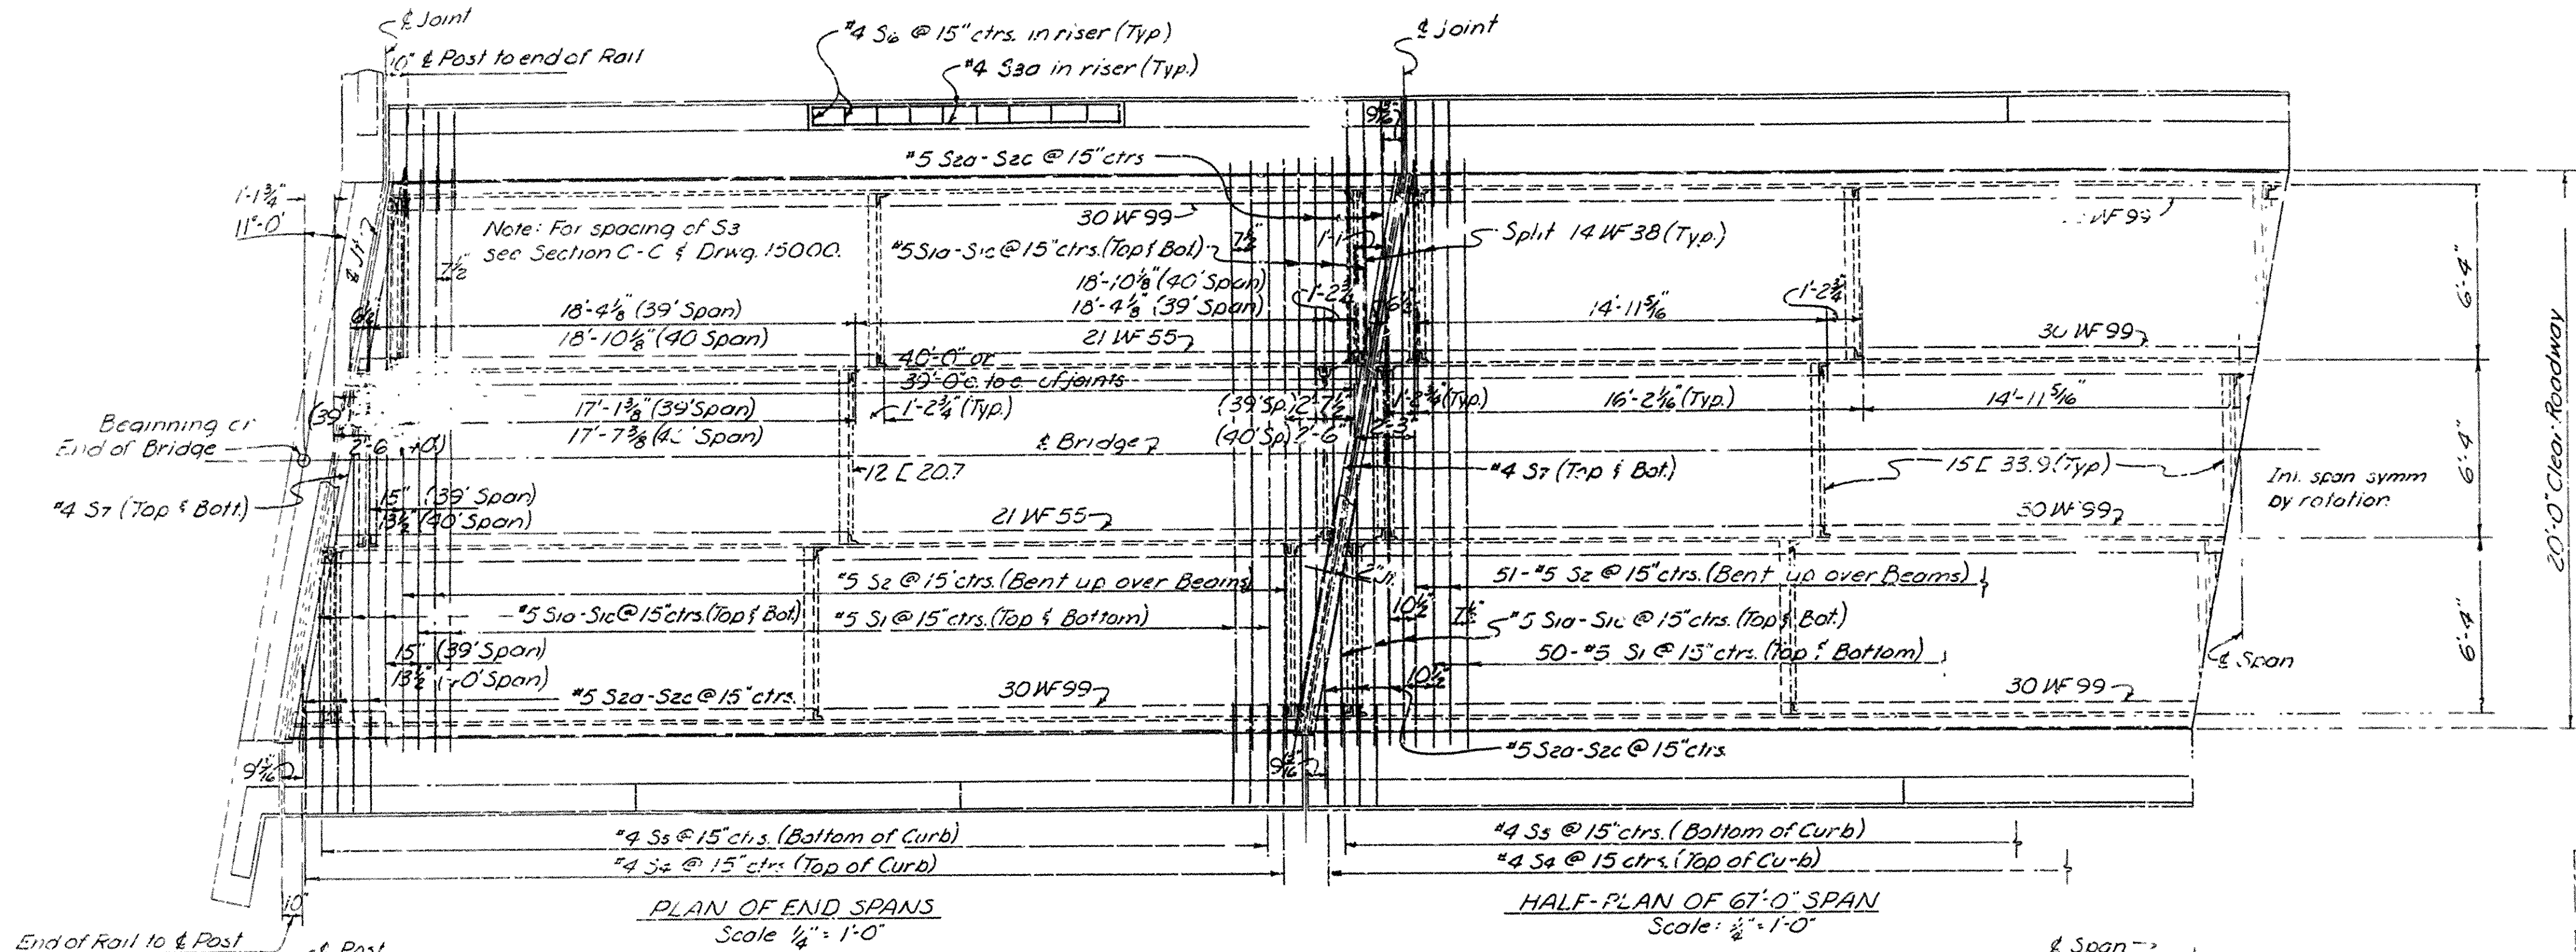 ℄ Joint
10" ℄ Post to end of Rail
#4 S6 @ 15" ctrs. in riser (Typ)
#4 S3a in riser (Typ.)
℄ joint
9 1/16"
#5 S2a-S2c @ 15" ctrs
1'-1 3/4"
11°-0'
℄ Jt.
Note: For spacing of S3
see Section C-C & Drwg. 15000.
7 1/2"
30 WF 99
#5 S1a-S1c @ 15" ctrs. (Top & Bot)
7 1/2"
1'-1"
Split 14 WF 38 (Typ.)
WF 99
18'-10 1/8" (40' Span)
18'-4 1/8" (39' Span)
1'-2 3/4"
6 1/2
18'-4 1/8 (39' Span)
18'-10 1/8" (40 Span)
21 WF 55
14'-11 5/16"
1'-2 3/4"
30 WF 99
6'-4"
40'-0" or
39'-0" c. to c. of joints
(39'
17'-1 3/8" (39' Span)
17'-7 3/8 (4 Span)
1'-2 3/4" (Typ.)
(39' Sp.) 2'-7 1/2"
(40' Sp) 2'-6"
1'-2 3/4" (Typ.)
2'-3"
16'-2 1/16" (Typ.)
14'-11 5/16"
Beginning or
End of Bridge
2'-6
℄ Bridge
12 [ 20.7
#4 S7 (Top & Bot.)
15 [ 33.9 (Typ)
Int. span symm
by rotation
6'-4"
20'-0" Clear Roadway
#4 S7 (Top & Bott.)
15" (39' Span)
13 1/2 (40' Span)
21 WF 55
30 WF 99
#5 S2 @ 15" ctrs. (Bent up over Beams)
51-#5 S2 @ 15" ctrs. (Bent up over Beams)
#5 S1a-S1c @ 15" ctrs. (Top & Bot)
#5 S1 @ 15" ctrs. (Top & Bottom)
10 1/2"
7 1/2"
#5 S1a-S1c @ 15" ctrs. (Top & Bot.)
50-#5 S1 @ 15" ctrs. (Top & Bottom)
6'-4"
15" (39' Span)
13 1/2" ( 0' Span)
#5 S2a-S2c @ 15" ctrs.
30 WF 99
10 1/2"
30 WF 99
℄ Span
#5 S2a-S2c @ 15" ctrs.
9 1/16"
9 1/16"
#4 S5 @ 15" ctrs. (Bottom of Curb)
#4 S4 @ 15" ctrs (Top of Curb)
#4 S5 @ 15" ctrs. (Bottom of Curb)
#4 S4 @ 15 ctrs. (Top of Curb)
10"
PLAN OF END SPANS
Scale 1/4" = 1'-0"
HALF-PLAN OF 67'-0" SPAN
Scale: 1/4" = 1'-0"
End of Rail to ℄ Post
℄ Post
℄ Span